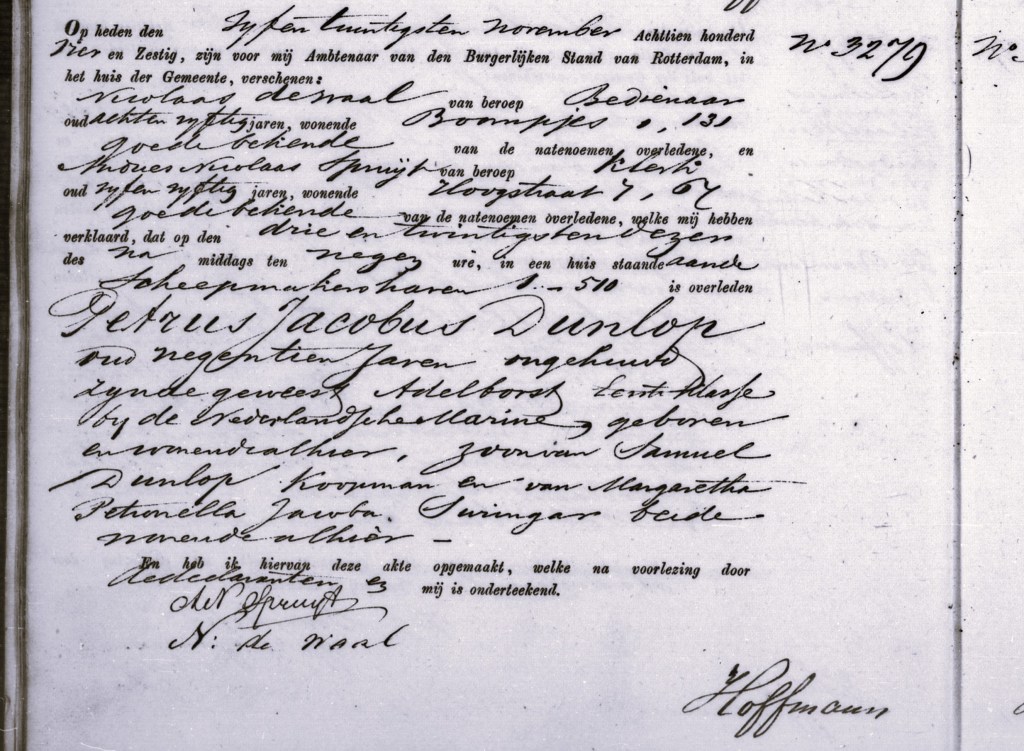 Op heden den vyfen twintigsten november Achttien honderd
Vier en Zestig, zijn voor mij Ambtenaar van den Burgerlijken Stand van Rotterdam, in
het huis der Gemeente, verschenen:
Nicolaas de Waal van beroep Bedienaar
oud achten vyftig jaren, wonende Boompjes 1, 131
goede bekende van de natenoemen overledene, en
Andries Nicolaas Spruijt van beroep Klerk
oud vyfen vyftig jaren, wonende Hoogstraat 7, 67
goede bekende van de natenoemen overledene, welke mij hebben
verklaard, dat op den drie en twintigsten dezer
des na middags ten negen ure, in een huis staande aande
Scheepmakershaven 1 - 510 is overleden
Petrus Jacobus Dunlop
oud negentien Jaren ongehuwd
zynde geweest Adelborst Eerste Klasse
by de Nederlandsche Marine, geboren
en wonende alhier, zoon van Samuel
Dunlop Koopman en van Margaretha
Petronella Jacoba Suringar beide
wonende alhier -
En heb ik hiervan deze akte opgemaakt, welke na voorlezing door
de declaranten en mij is onderteekend.
AN Spruijt
N: de Waal
Hoffmann
No 3279
No